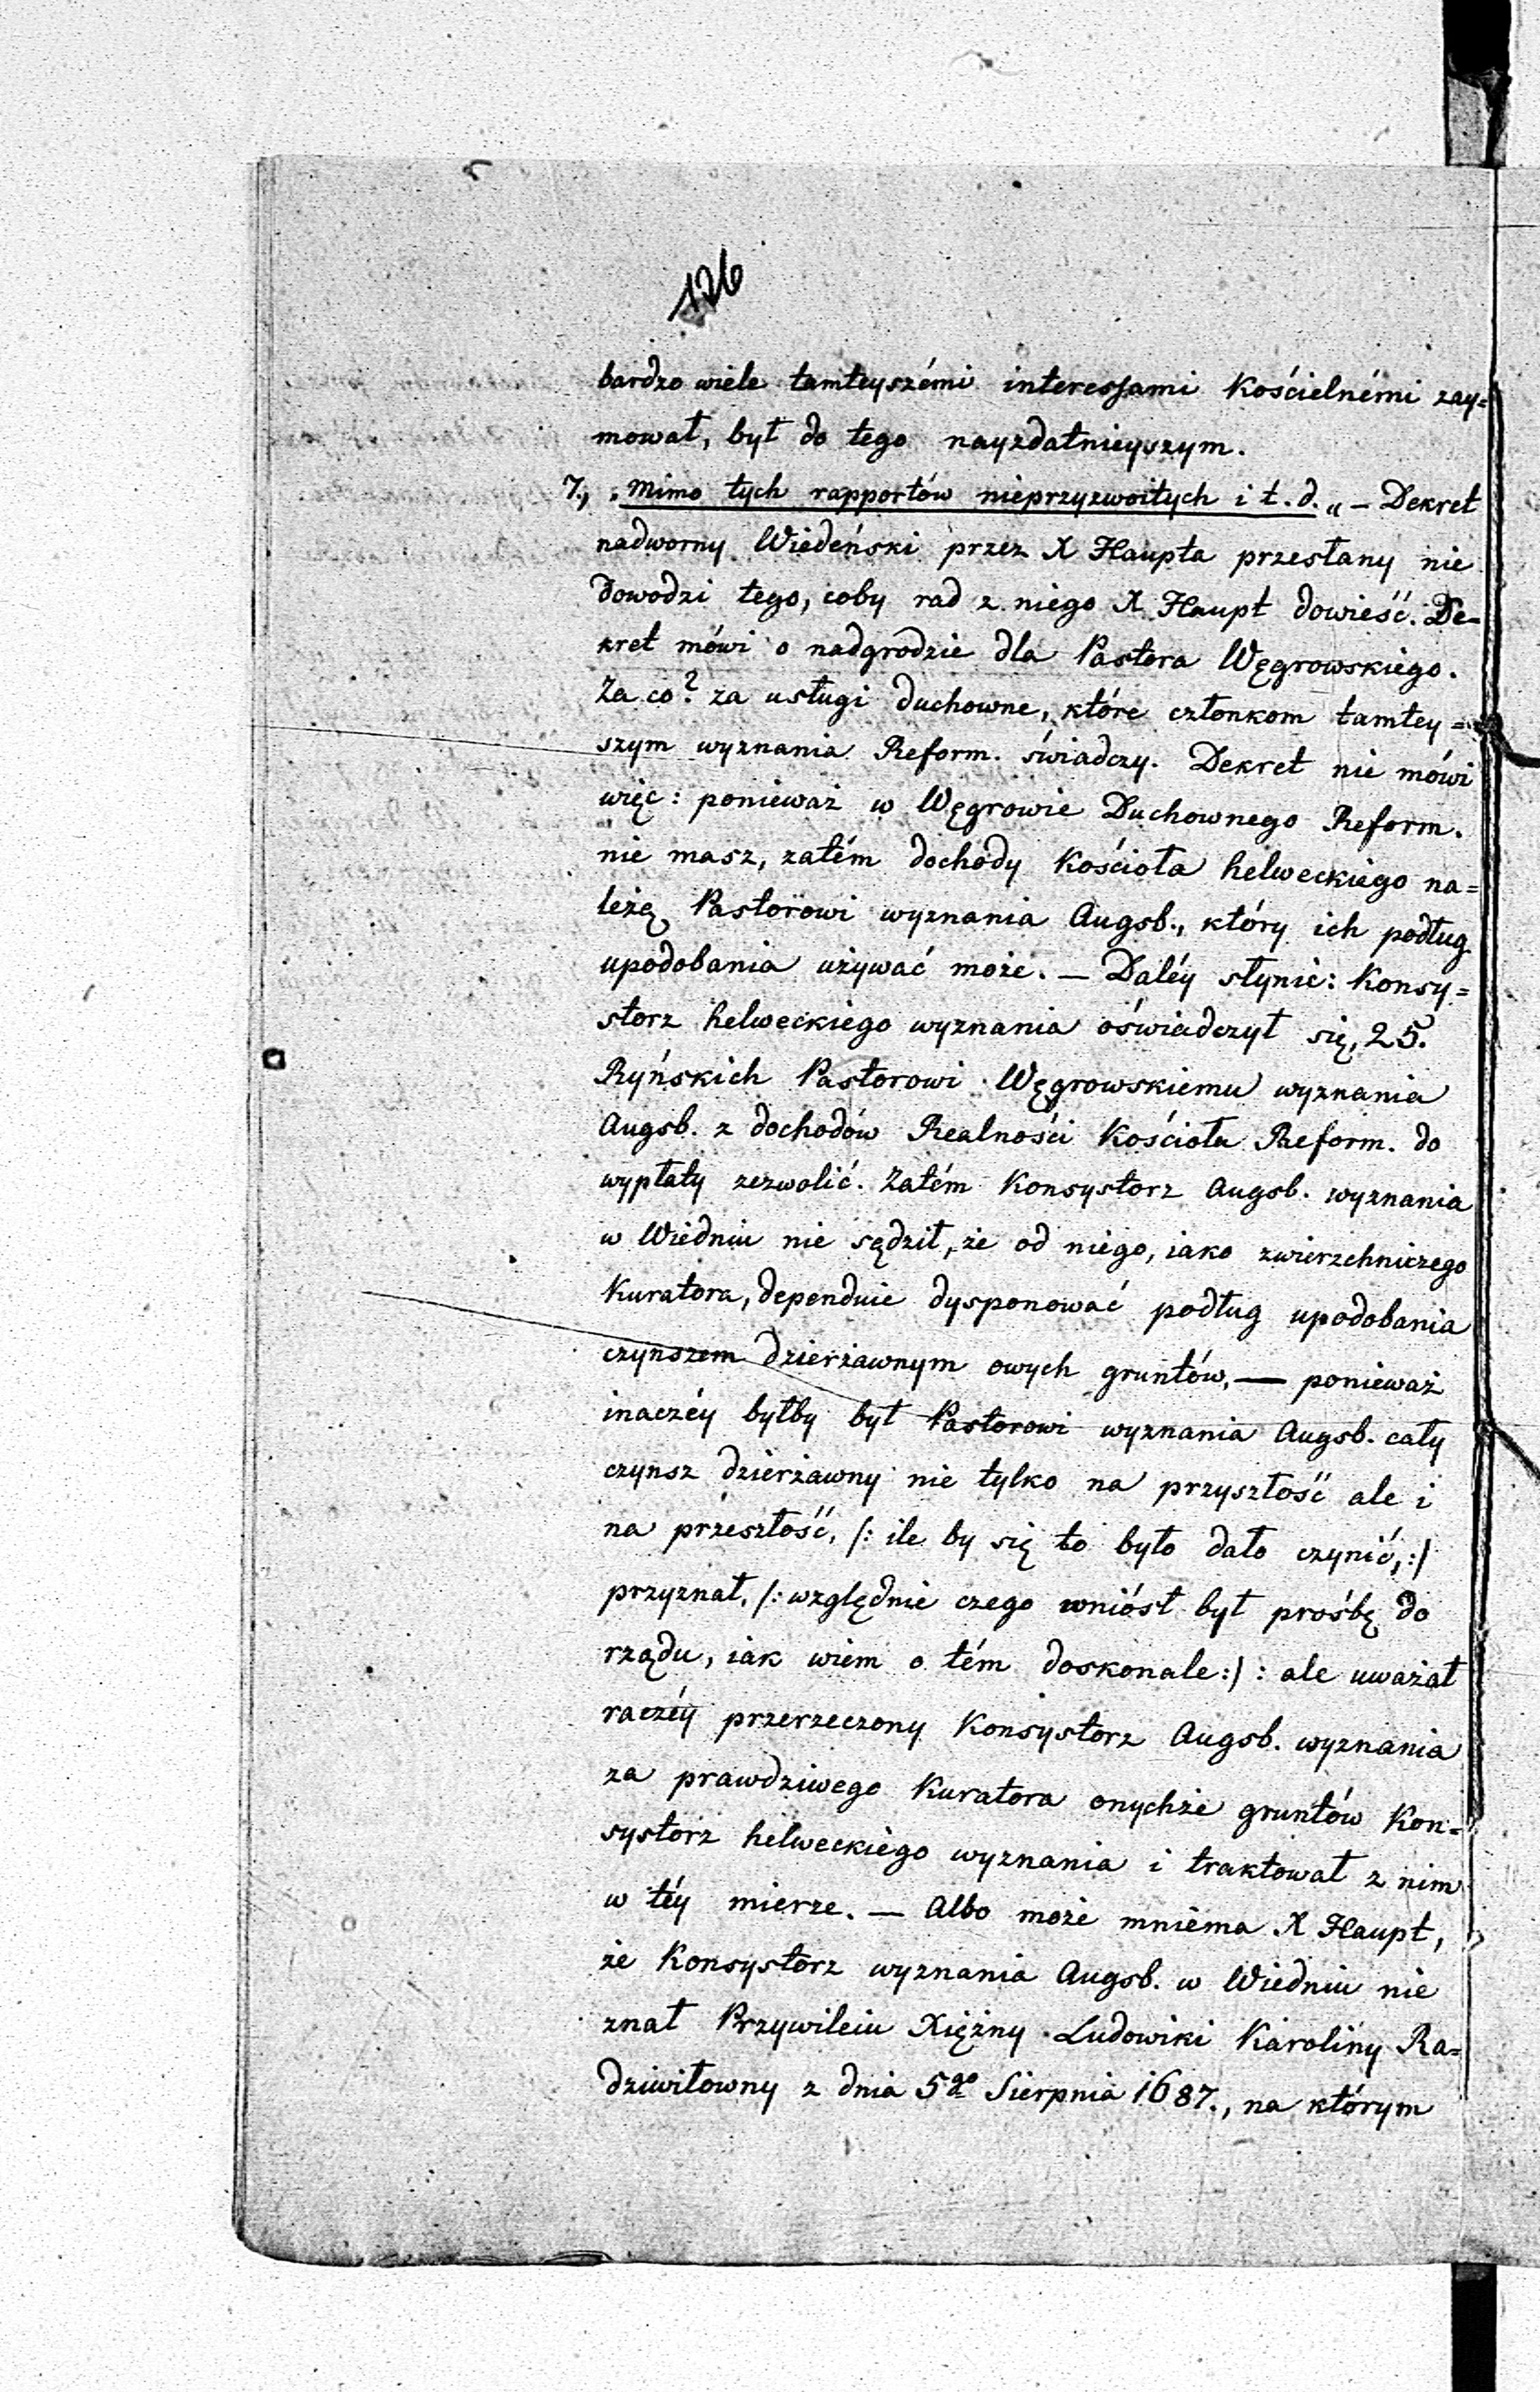 126
bardzo wiele tamteyszémi interessami Kościelnémi zay=
mował, był do tego nayzdatnieyszym.
7., „Mimo tych rapportów nieprzyzwoitych i t. d.„ — Dekret
nadworny Wiedeński przez X Haupta przesłany nie
dowodzi tego, coby rad z niego X Haupt dowieść. De-
kret mówi o nadgrodzie dla Pastora Węgrowskiego.
Za co? za usługi duchowne, które członkom tamtey=
szym wyznania Reform. świadczy. Dekret nie mówi
więc: ponieważ w Węgrowie Duchownego Reform.
nie masz, zatém dochody Kościoła helweckiego na=
leżą Pastorowi wyznania Augsb., który ich podług
upodobania używać może. — Daléy słynie: Konsy=
storz helweckiego wyznania oświadczył się, 25.
Ryńskich Pastorowi Węgrowskiemu wyznania
Augsb. z dochodów Realności Kościoła Reform. do
wypłaty zezwolić. Zatém Konsystorz Augsb. wyznania
w Wiedniu nie sądził, że od niego, iako zwierzchniczego
Kuratora, dependuie dysponować podług upodobania
czynszem dzierżawnym owych gruntów, — ponieważ
inaczéy byłby był Pastorowi wyznania Augsb. cały
czynsz dzierżawny nie tylko na przyszłość ale i
na przeszłość, /: ile by się to było dało czynić, :/
przyznał, /: względnie czego wniósł był prośbę do
rządu, iak wiem o tém doskonale :/ : ale uważał
raczéy przerzeczony Konsystorz Augsb. wyznania
za prawdziwego Kuratora onychże gruntów Kon=
systorz helweckiego wyznania i traktował z nim
w téy mierze. — Albo może mniema X Haupt,
że Konsystorz wyznania Augsb. w Wiedniu nie
znał Przywileiu Xiężny Ludowiki Karoliny Ra=
dziwiłowny z dnia 5go Sierpnia 1687., na którym